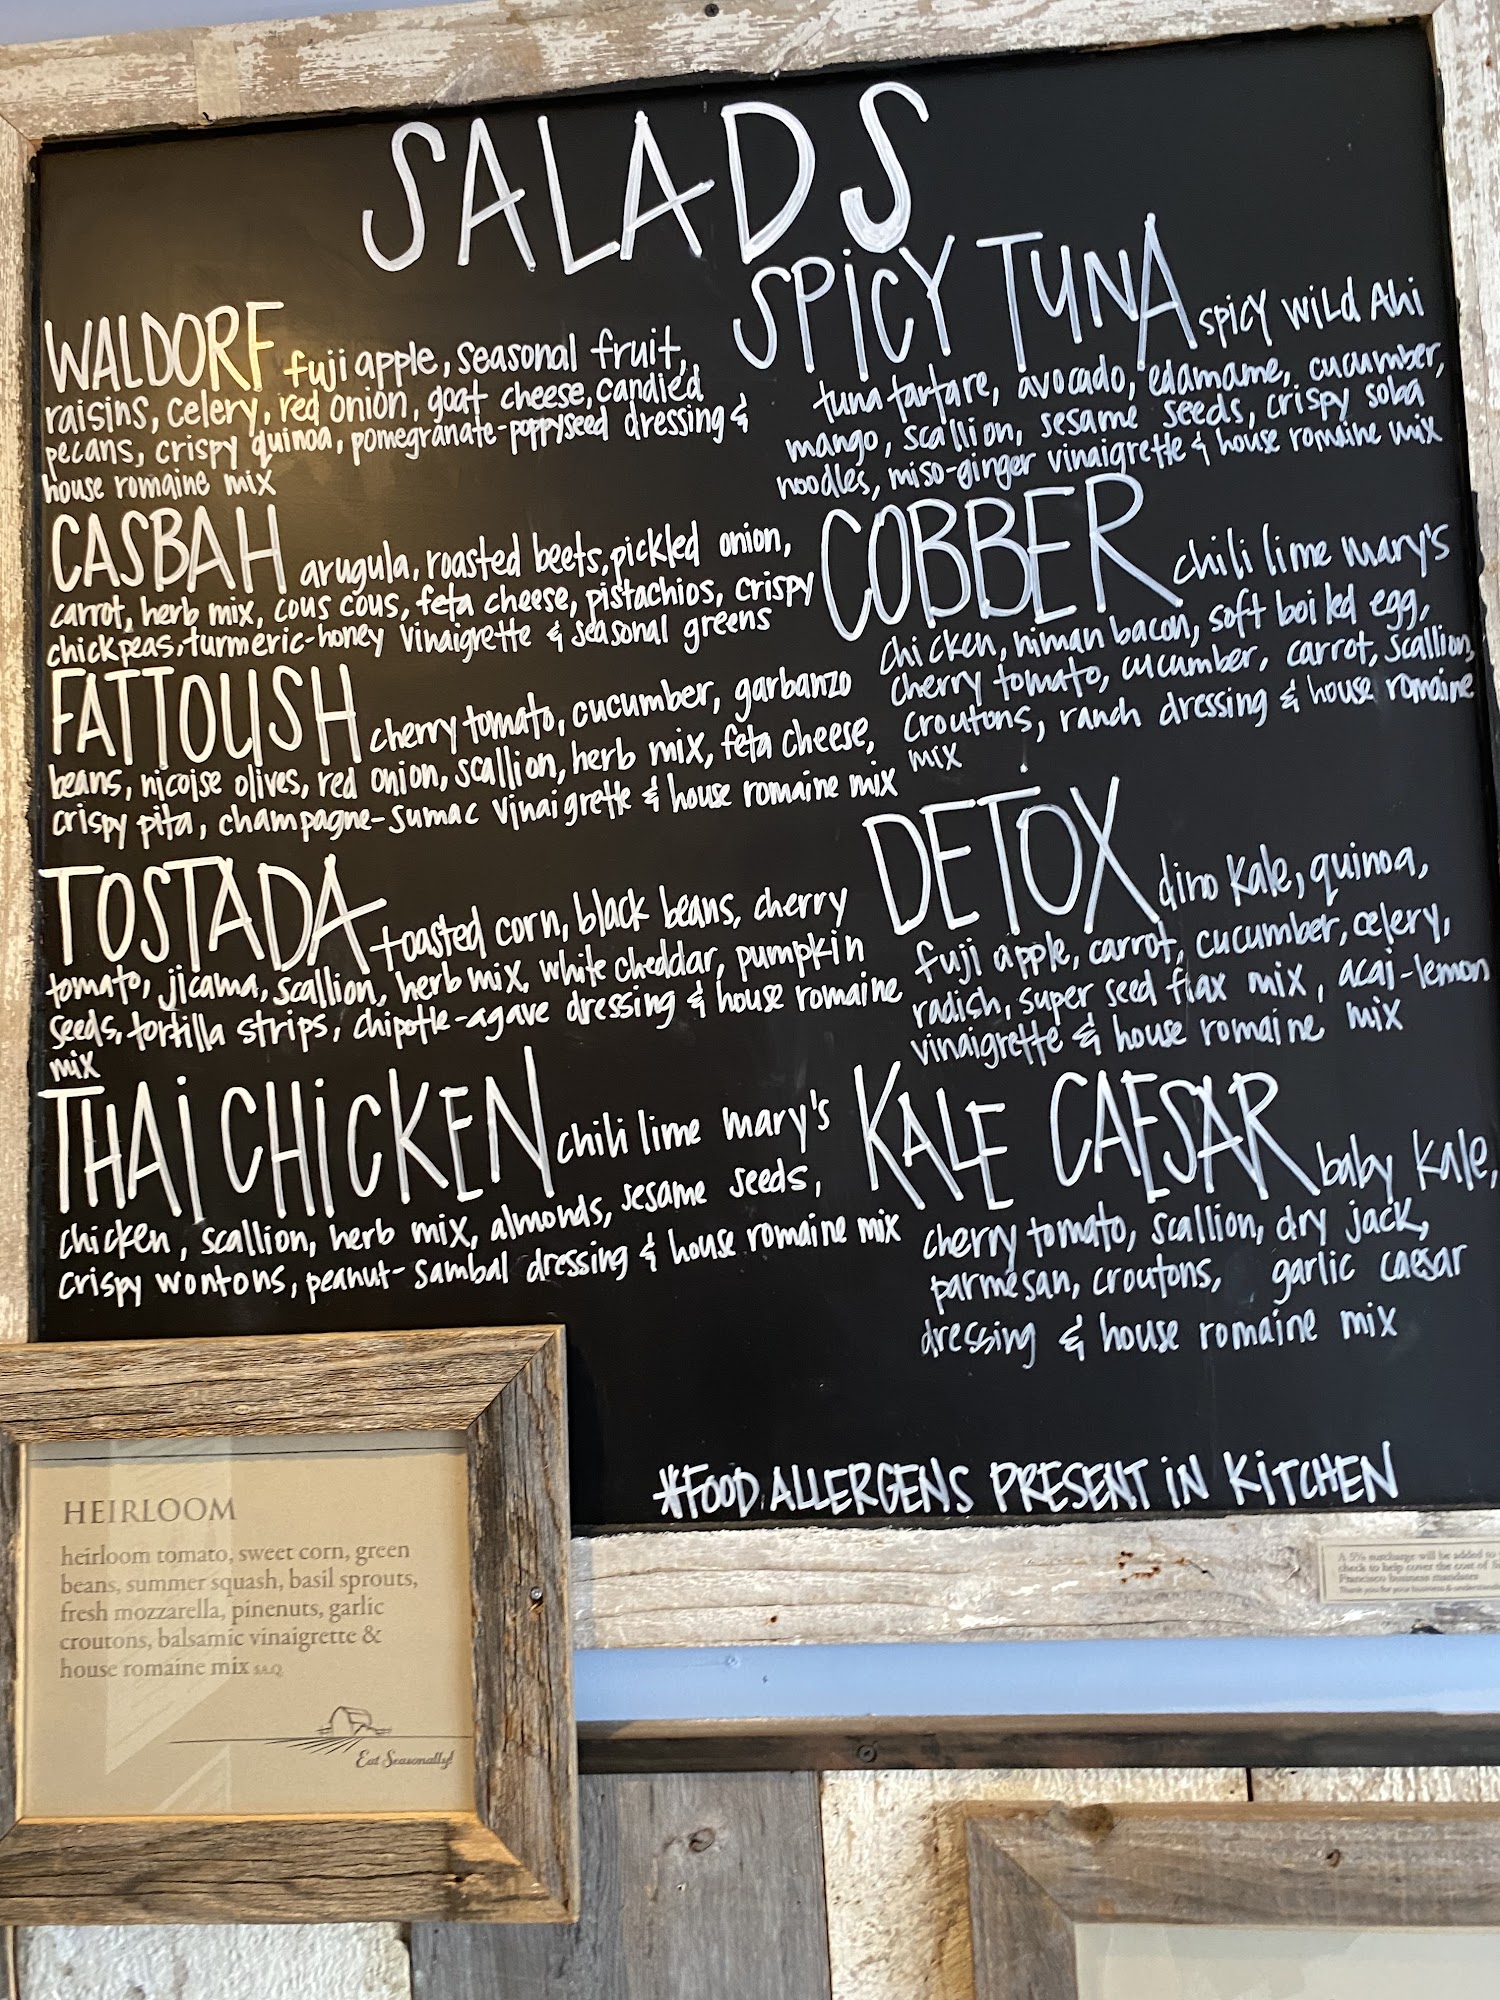 SALADS
WALDORF fuji apple, seasonal fruit,
raisins, celery, red onion, goat cheese, candied
pecans, crispy quinoa, pomegranate-poppyseed dressing &
house romaine mix
CASBAH arugula, roasted beets, pickled onion,
carrot, herb mix, cous cous, feta cheese, pistachios, crispy
chickpeas, turmeric-honey vinaigrette & seasonal greens
FATTOUSH cherry tomato, cucumber, garbanzo
beans, nicoise olives, red onion, scallion, herb mix, feta cheese,
crispy pita, champagne-sumac vinaigrette & house romaine mix
TOSTADA toasted corn, black beans, cherry
tomato, jicama, scallion, herb mix, white cheddar, pumpkin
seeds, tortilla strips, chipotle-agave dressing & house romaine
mix
THAI CHICKEN chili lime mary's
chicken, scallion, herb mix, almonds, sesame seeds,
crispy wontons, peanut-sambal dressing & house romaine mix
SPICY TUNA spicy wild Ahi
tuna tartare, avocado, edamame, cucumber,
mango, scallion, sesame seeds, crispy soba
noodles, miso-ginger vinaigrette & house romaine mix
COBBER chili lime mary's
chicken, niman bacon, soft boiled egg,
cherry tomato, cucumber, carrot, scallion,
croutons, ranch dressing & house romaine
mix
DETOX dino kale, quinoa,
fuji apple, carrot, cucumber, celery,
radish, super seed flax mix, acai-lemon
vinaigrette & house romaine mix
KALE CAESAR baby kale,
cherry tomato, scallion, dry jack,
parmesan, croutons, garlic caesar
dressing & house romaine mix
*FOOD ALLERGENS PRESENT IN KITCHEN
A 5% surcharge will be added to
check to help cover the cost of
Francisco business mandates
Thank you for your business &
HEIRLOOM
heirloom tomato, sweet corn, green
beans, summer squash, basil sprouts,
fresh mozzarella, pinenuts, garlic
croutons, balsamic vinaigrette &
house romaine mix S.A.Q.
Eat Seasonally!